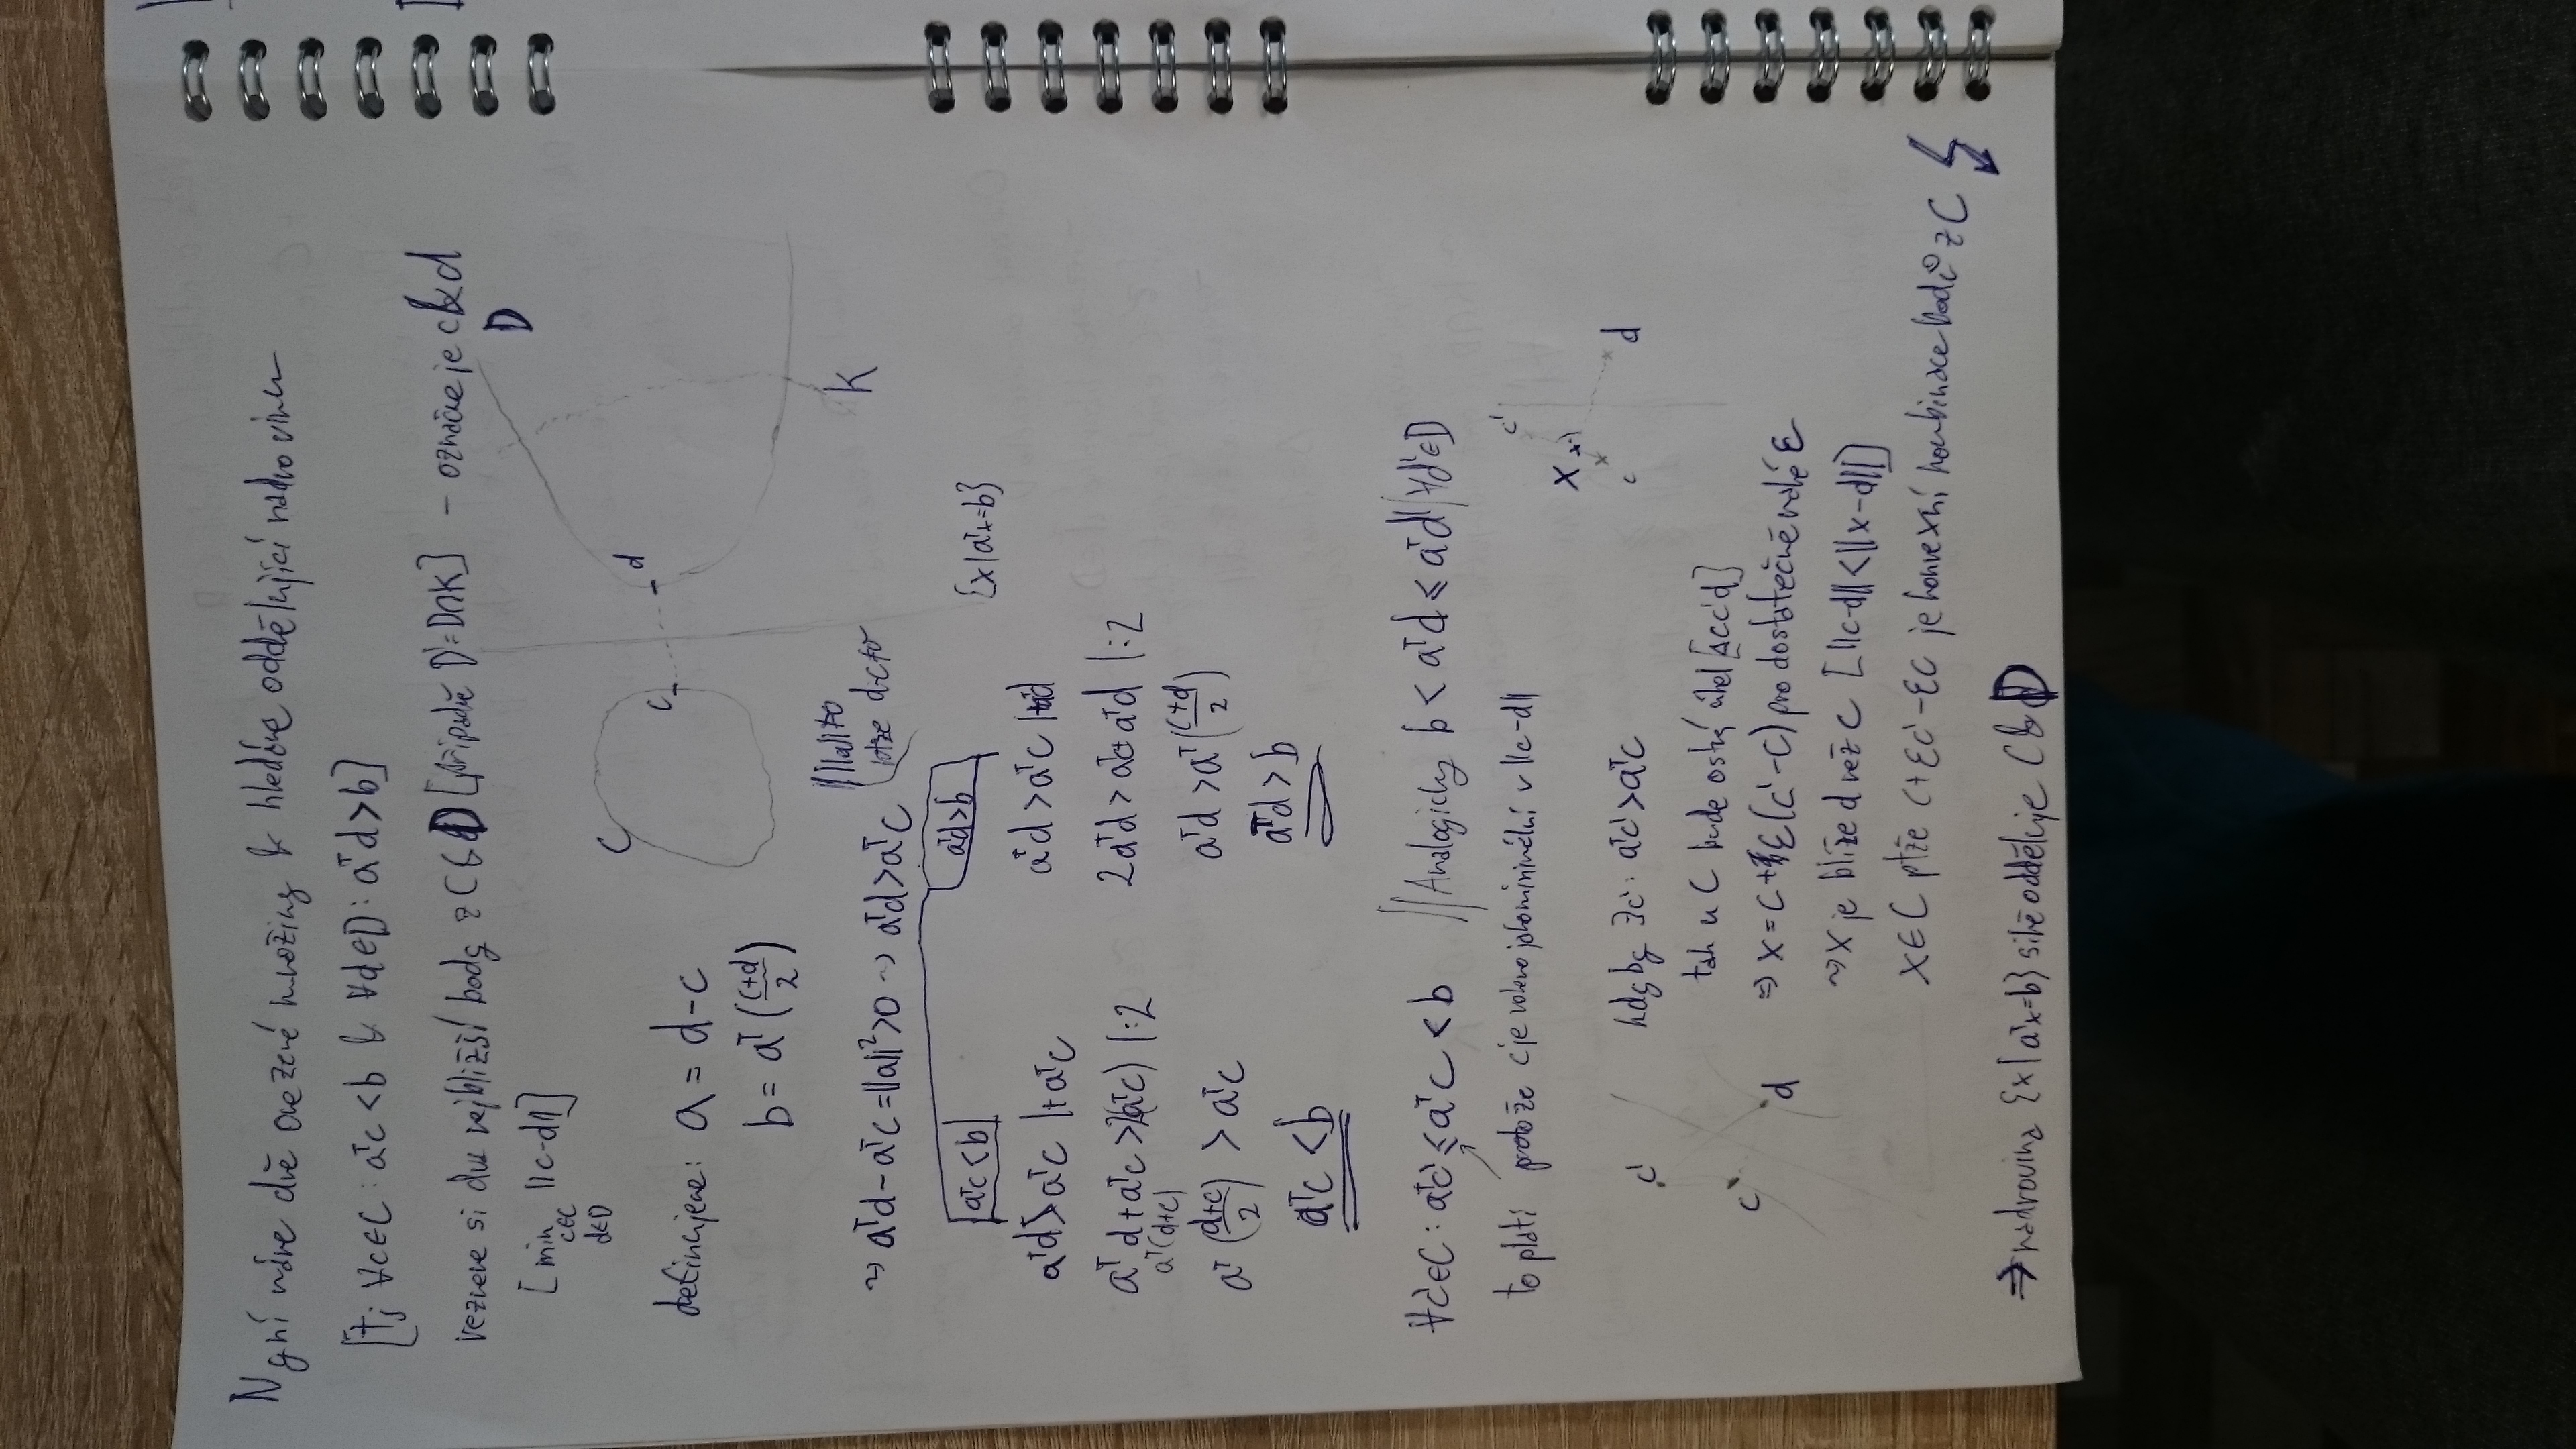 Nyní máme dvě omezené množiny & hledáme oddělující nadrovinu
[tj ∀c∈C : aᵀc < b & ∀d∈D : aᵀd > b]
vezmeme si dva nejbližší body z C & D [případně D' = D∩K] – označme je c & d
[min c∈C d∈D ||c-d||]
C c d D
K
{x|aᵀx=b}
definujeme: a = d-c
b = aᵀ((c+d)/2)
⇝ aᵀd - aᵀc = ||a||² > 0 ⇝ aᵀd > aᵀc // ||a|| ≠ 0 d-c≠0
aᵀc < b
aᵀd > aᵀc |+aᵀc
aᵀd + aᵀc > 2(aᵀc) |:2
aᵀ(d+c)
aᵀ((d+c)/2) > aᵀc
aᵀc < b
aᵀd > b
aᵀd > aᵀc |+aᵀd
2aᵀd > aᵀc + aᵀd |:2
aᵀd > aᵀ((c+d)/2)
aᵀd > b
∀c'∈C : aᵀc' ≤ aᵀc < b // Analogicky b < aᵀd ≤ aᵀd' | ∀d'∈D
to platí protože c je voleno jako minimální v ||c-d||
c' c d
kdyby ∃c' : aᵀc' > aᵀc
tak u C bude ostrý úhel [∆cc'd]
⇒ x = c + ε(c'-c) pro dostatečně malé ε
⇝ x je blíže d než c [||c-d|| < ||x-d||]
x∈C ptže c+εc'-εc je konvexní kombinace bodů z C
c' x c d
⇒ nadrovina {x|aᵀx=b} silně odděluje C & D